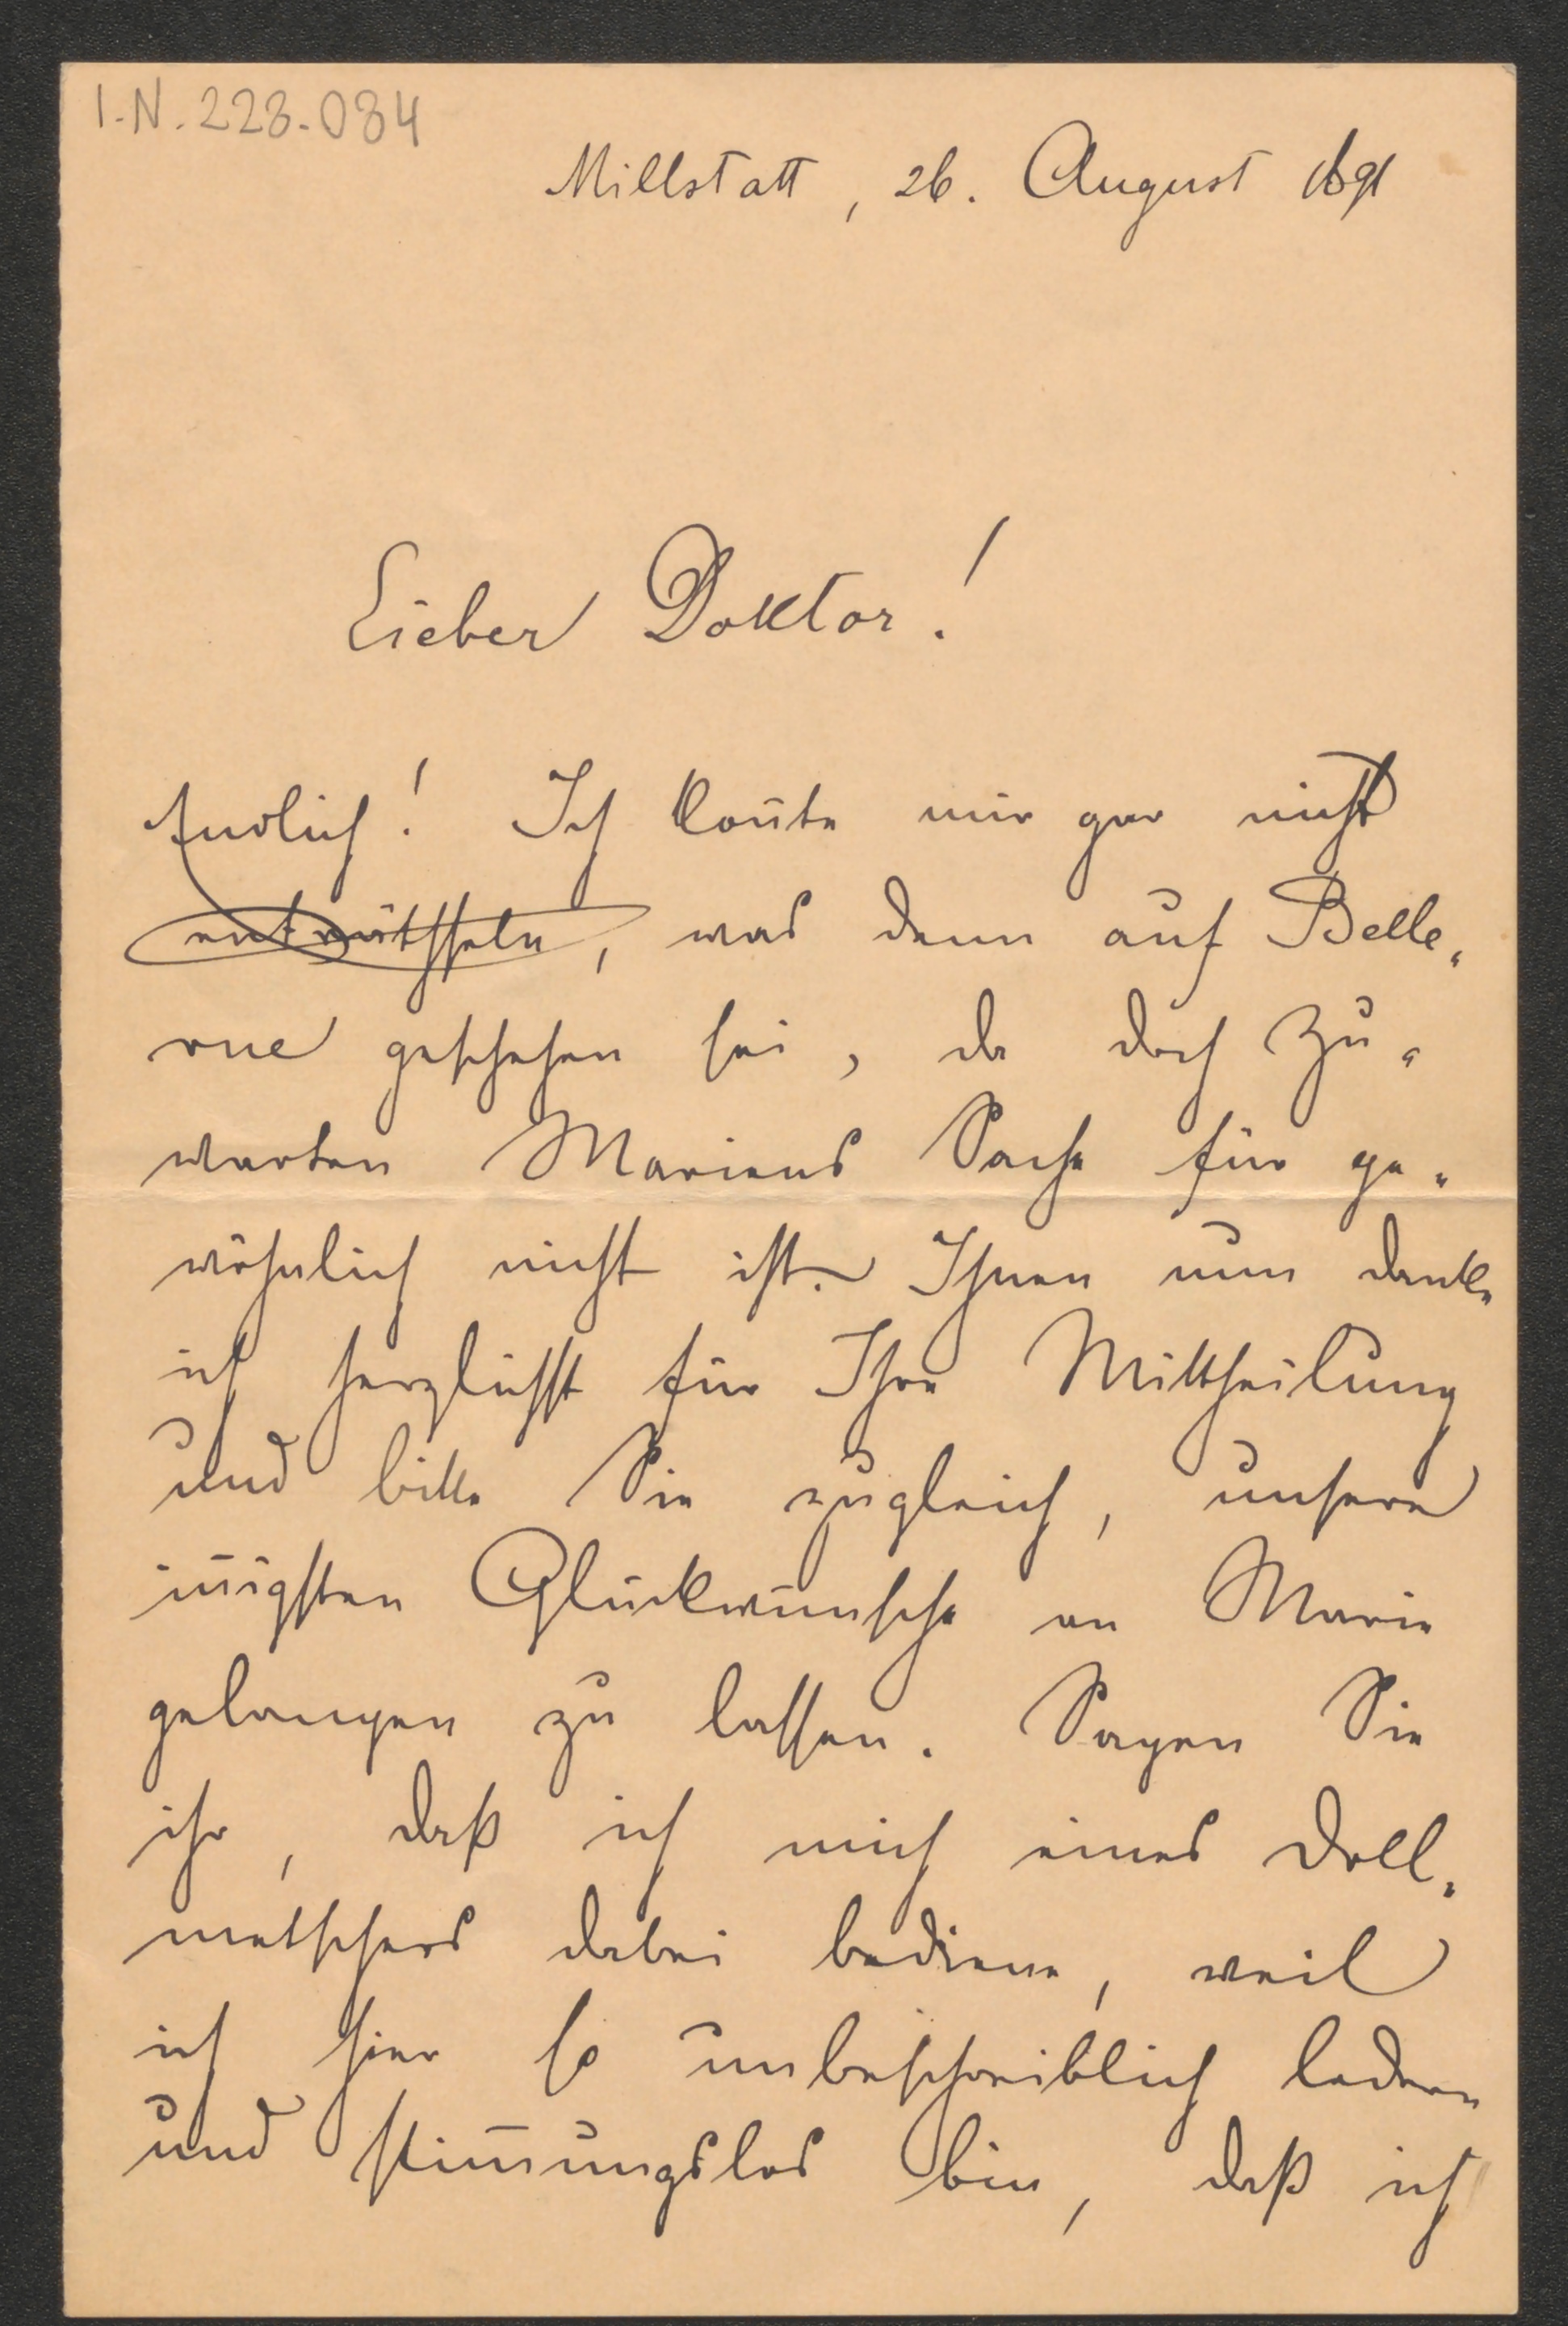 I.N. 228.084
Millstatt, 26. August 1891
Lieber Doktor!
Endlich! Ich kon̄te mir gar nicht
enträthseln, was denn auf Belle-
vue geschehen sei, da doch Zu-
warten Mariens Sache für ge-
wöhnlich nicht ist. Ihnen nun danke
ich herzlichst für Ihre Mittheilung
und bitte Sie zugleich, unsere
in̄igsten Glückwünsche an Marie
gelangen zu lassen. Sagen Sie
ihr, daß ich mich eines Doll-
metschers dabei bediene, weil
ich hier so unbeschreiblich ledern
und stim̄ungslos bin, daß ich